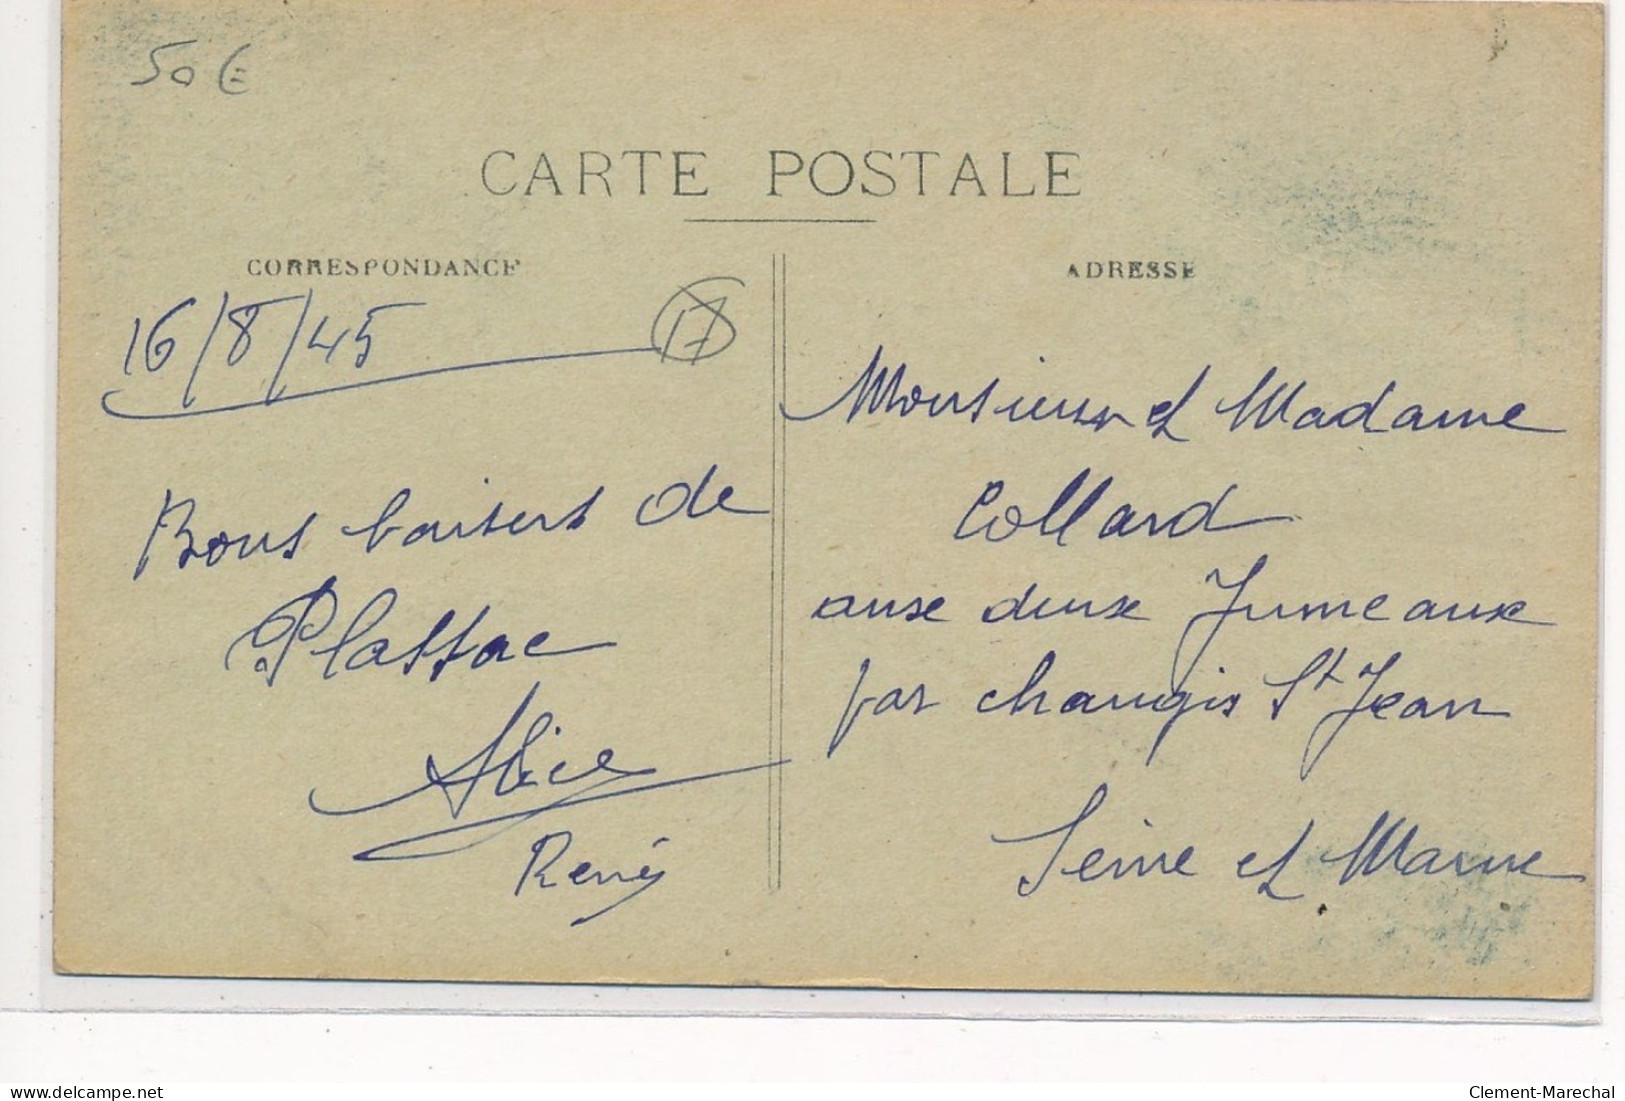 50€
CARTE POSTALE
CORRESPONDANCE
16/8/45
17
Bons baisers de
Plassac
Alice
René
ADRESSE
Monsieur et Madame
Collard
aux deux Jumeaux
par Changis St Jean
Seine et Marne
www.delcampe.net
Clement-Marechal